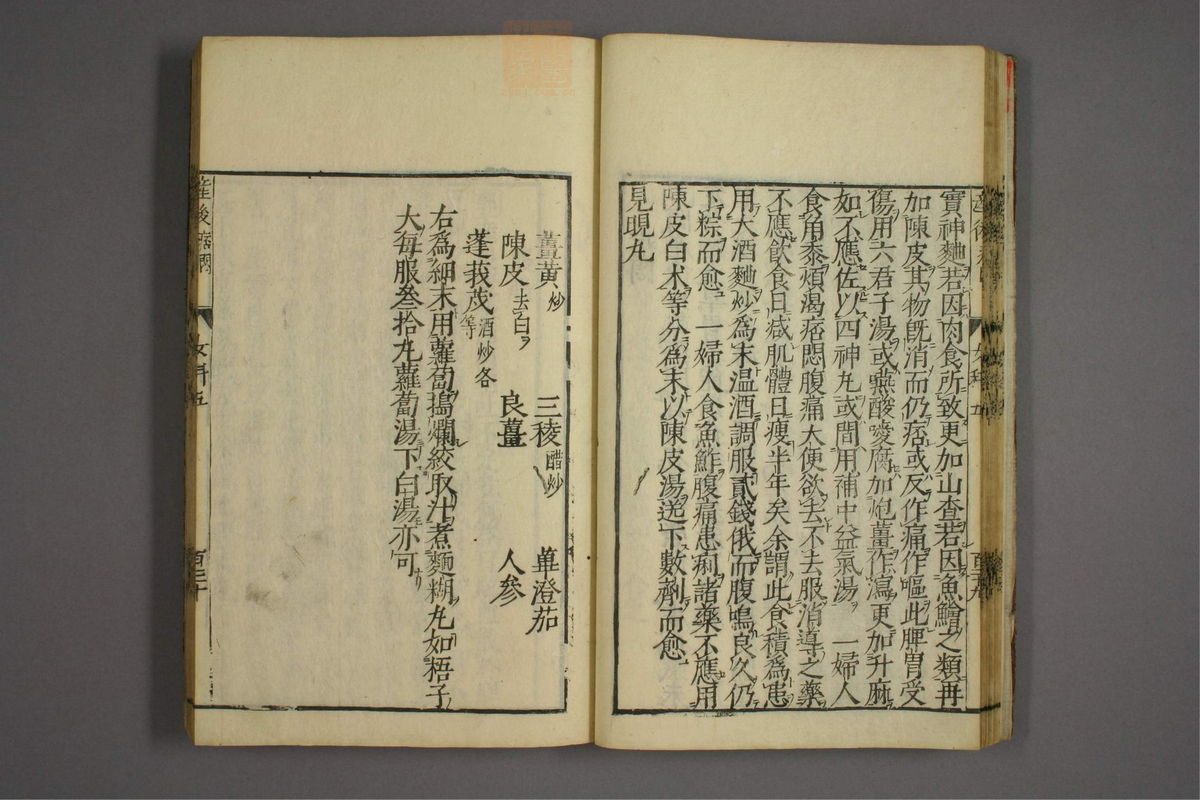 實神麯若因肉食所致更加山査若因魚鱠之類再
加陳皮其物既消而仍痞或反作痛作嘔此脾胃受
傷用六君子湯或嚥酸噯腐加炮薑作瀉更加升麻
如不應佐以四神丸或間用補中益氣湯 一婦人
食角黍煩渴痞悶腹痛大便欲去不去服消導之藥
不應飲食日减肌體日瘦半年矣余謂此食積爲患
用大酒麯炒爲末温酒調服貳錢俄而腹鳴良久仍
下粽而愈 一婦人食魚鮓腹痛患痢諸藥不應用
陳皮白术等分爲末以陳皮湯送下數劑而愈
見晛丸
薑黄炒 三稜醋炒 蓽澄茄
陳皮去白 良薑 人參
蓬莪茂酒炒各等
右爲細末用蘿蔔搗爛絞取汁煮麵糊丸如梧子
大每服叄拾丸蘿蔔湯下白湯亦可
産後痞悶
女科五
百三十